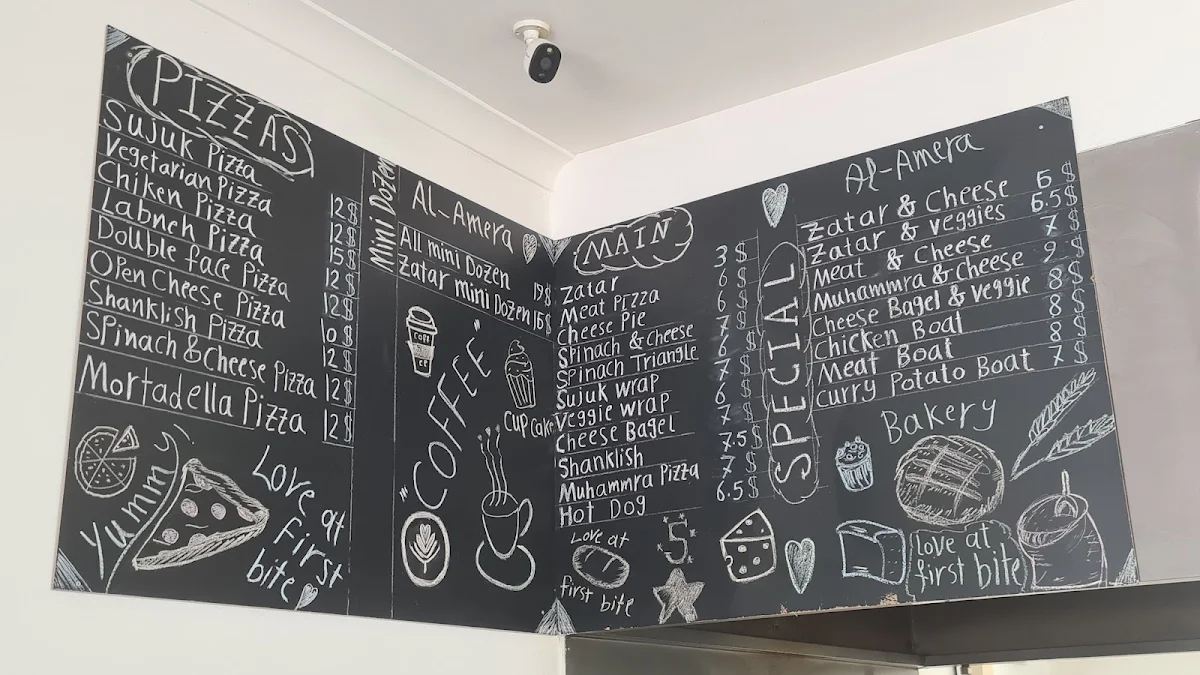 PIZZAS
Sujuk Pizza 12$
Vegetarian Pizza 12$
Chiken Pizza 15$
Labneh Pizza 12$
Double face Pizza 12$
Open Cheese Pizza 10$
Shanklish Pizza 12$
Spinach & Cheese Pizza 12$
Mortadella Pizza 12$
Yummy
Love at
First
bite
Mini Dozen
Al-Amera
All mini Dozen 19$
Zatar mini Dozen 16$
"COFFEE"
COFF
EE
Cup Cake
MAIN
Zatar 3$
Meat Pizza 6
Cheese Pie 6$
Spinach & Cheese 7
Spinach Triangle 7$
Sujuk wrap 7
Veggie wrap 6$
Cheese Bagel 7
Shanklish 7.5$
Muhammra Pizza 7$
Hot Dog 6.5$
Love at
first bite
5
SPECIAL
Al-Amera
Zatar & Cheese 6$
Zatar & veggies 6.5$
Meat & Cheese 7
Muhammra & Cheese 9$
Cheese Bagel & Veggie 8$
Chicken Boat 8
Meat Boat 8
Curry Potato Boat 7$
Bakery
love at
first bite